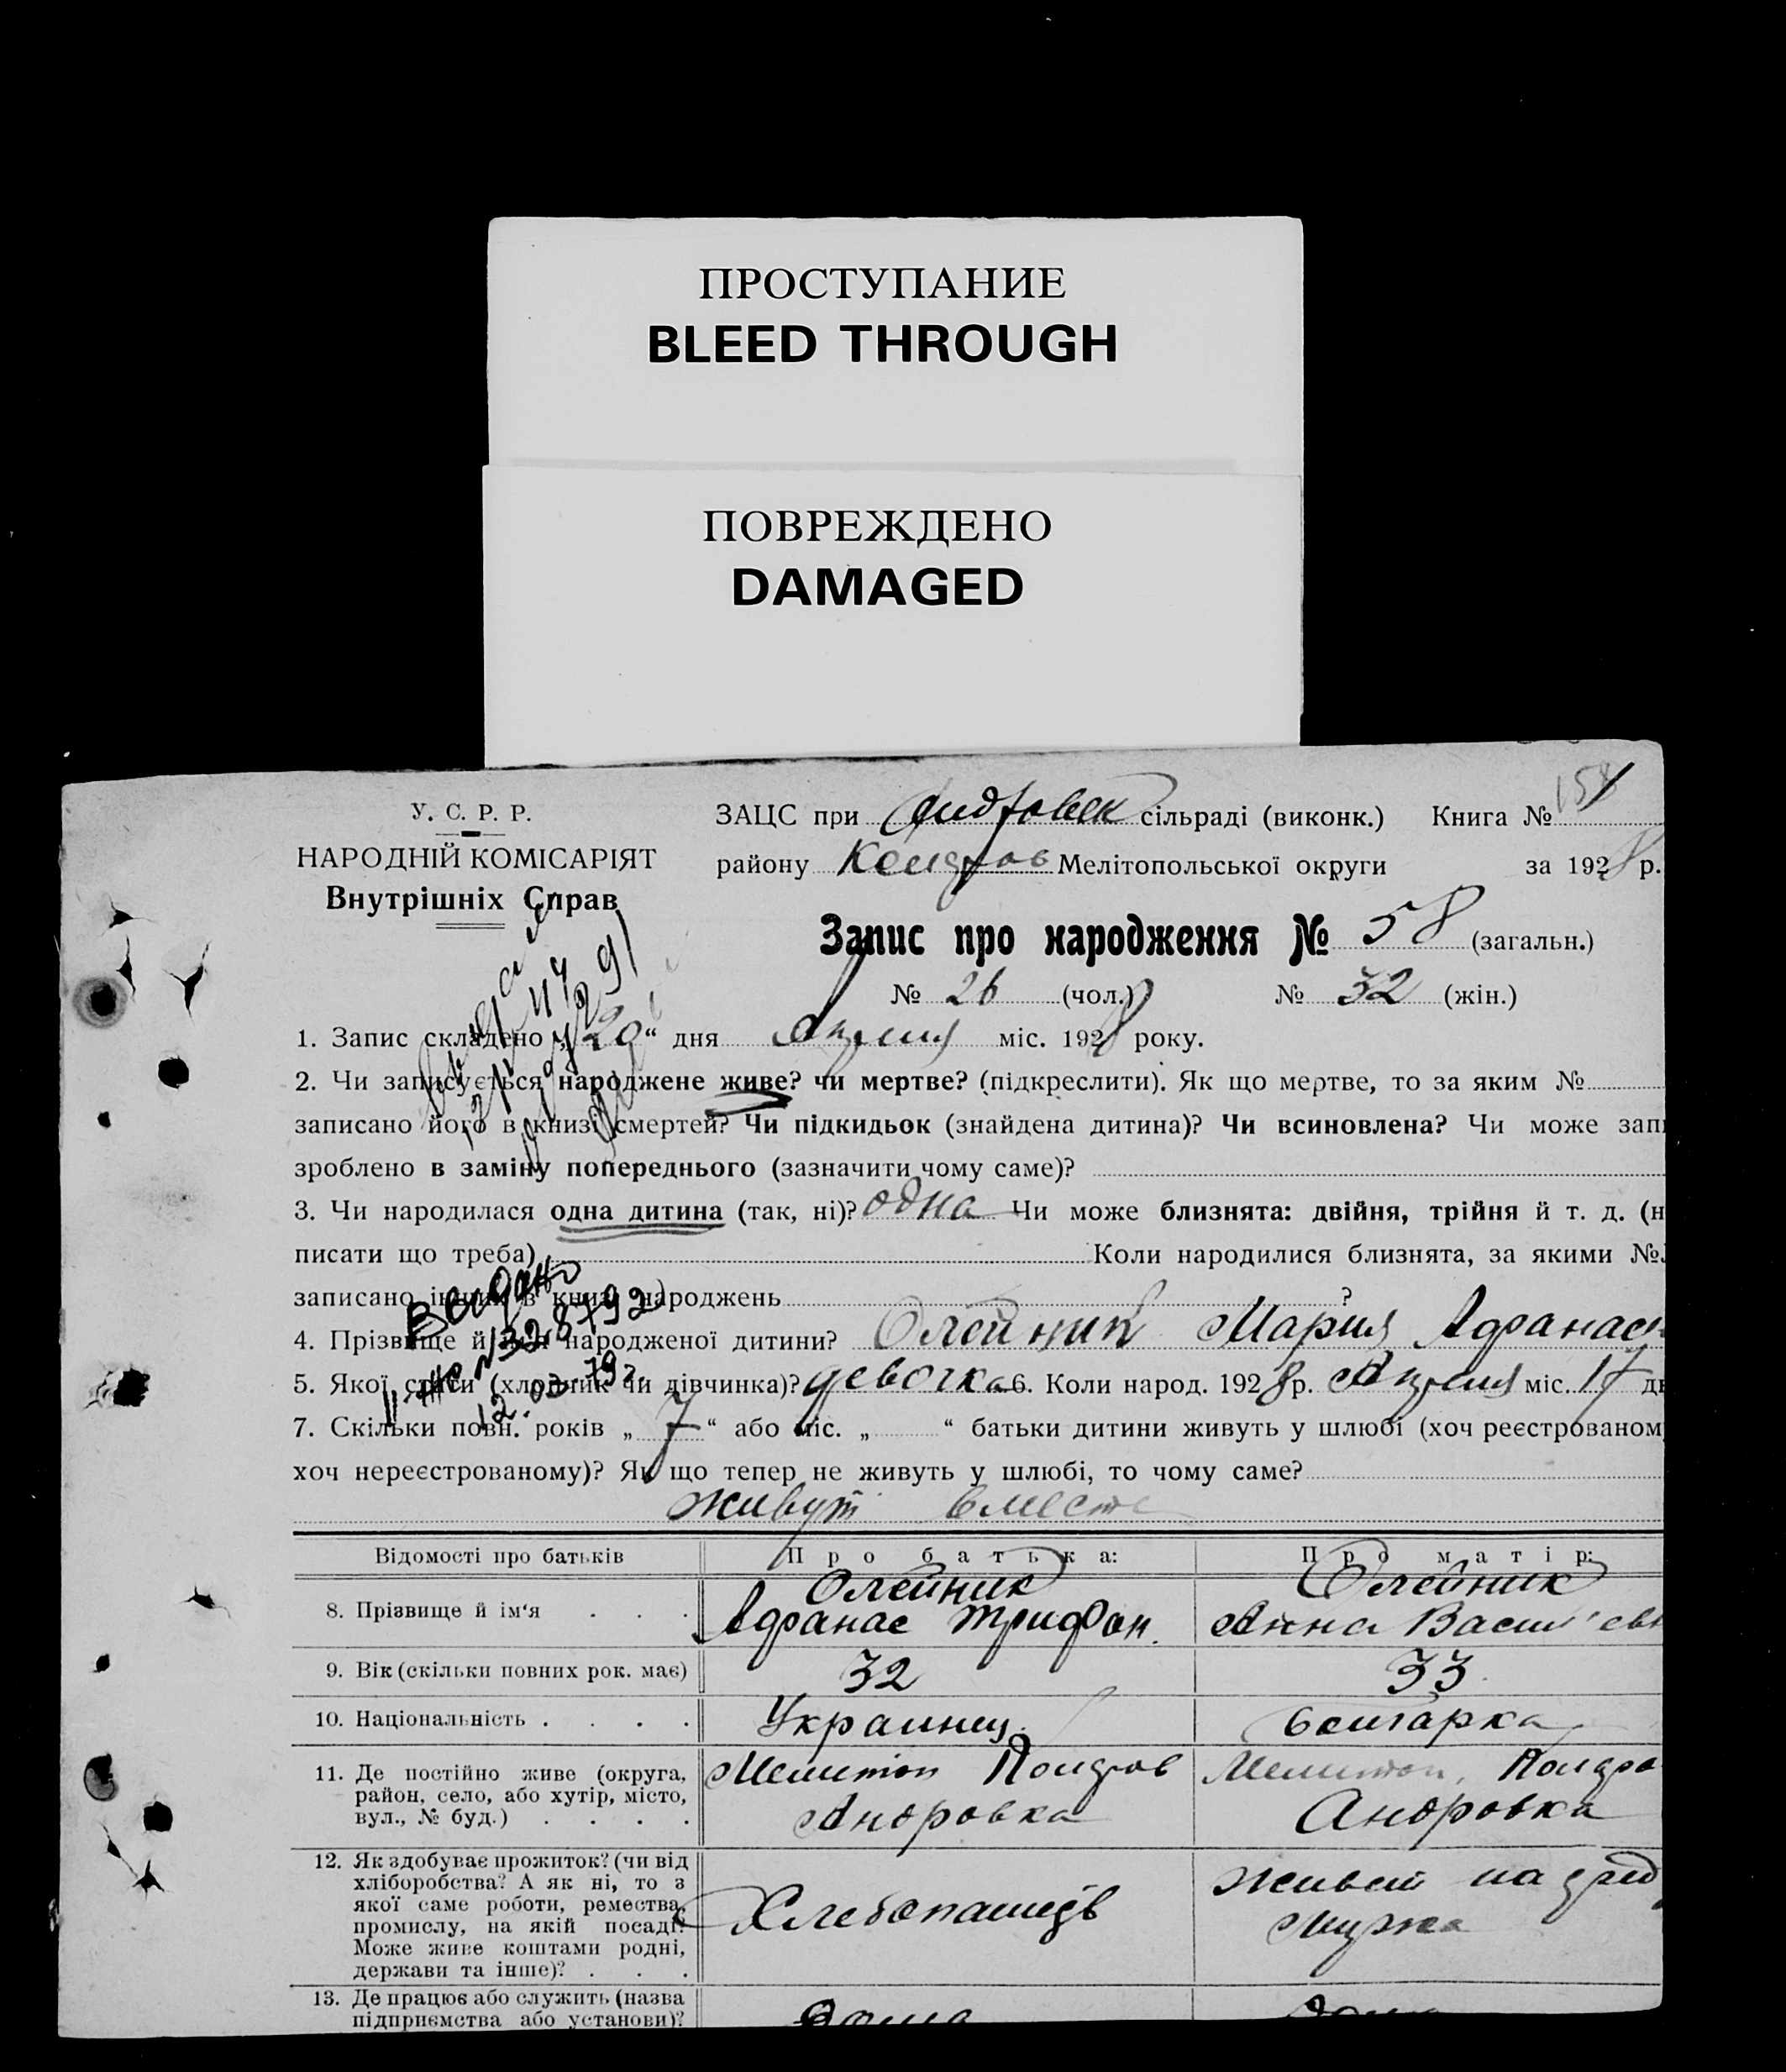 ПРОСТУПАНИЕ
BLEED THROUGH
ПОВРЕЖДЕНО
DAMAGED
У. С. Р. Р.
НАРОДНІЙ КОМІСАРІЯТ
Внутрішніх Справ
ЗАЦС при сільраді (виконк.) Книга №
району Мелітопольської округи за 1928 р.
Запис про народження № 58 (загальн.)
№ 26 (чол.) № 32 (жін.)
1. Запис складено „20“ дня Апреля міс. 1928 року.
2. Чи записується народжене живе? чи мертве? (підкреслити). Як що мертве, то за яким №
записано його в книзі смертей? Чи підкидьок (знайдена дитина)? Чи всиновлена? Чи може зап
зроблено в заміну попереднього (зазначити чому саме)?
3. Чи народилася одна дитина (так, ні)? одна Чи може близнята: двійня, трійня й т. д. (н
писати що треба) Коли народилися близнята, за якими №
записано інших в книзі народжень ?
Видано
4. Прізвище й ім'я народженої дитини? Олейник Мария Афанась
5. Якої статі (хлопчик чи дівчинка)? девочка 6. Коли народ. 1928 р. Апреля міс. 17 дн
12.03.79г.
7. Скільки повн. років „7“ або міс. „ “ батьки дитини живуть у шлюбі (хоч реєстрованом
хоч нереєстрованому)? Як що тепер не живуть у шлюбі, то чому саме?
живут вместе
Відомості про батьків Про батька: Про матір:
8. Прізвище й ім'я . . . Олейник Афанас Трифон. Олейник Анна Васил'евн
9. Вік (скільки повних рок. має) 32 33
10. Національність . . . . Украинец болгарка
11. Де постійно живе (округа,
район, село, або хутір, місто,
вул., № буд.) . . . .
Мелитоп
Андровка
Мелитоп,
Андровка
12. Як здобуває прожиток? (чи від
хліборобства? А як ні, то з
якої саме роботи, ремества,
промислу, на якій посаді?
Може живе коштами родні,
держави та інше)? . . .
Хлебопашець
живет на сред
мужа
13. Де працює або служить (назва
підприємства або установи)?
дома дома